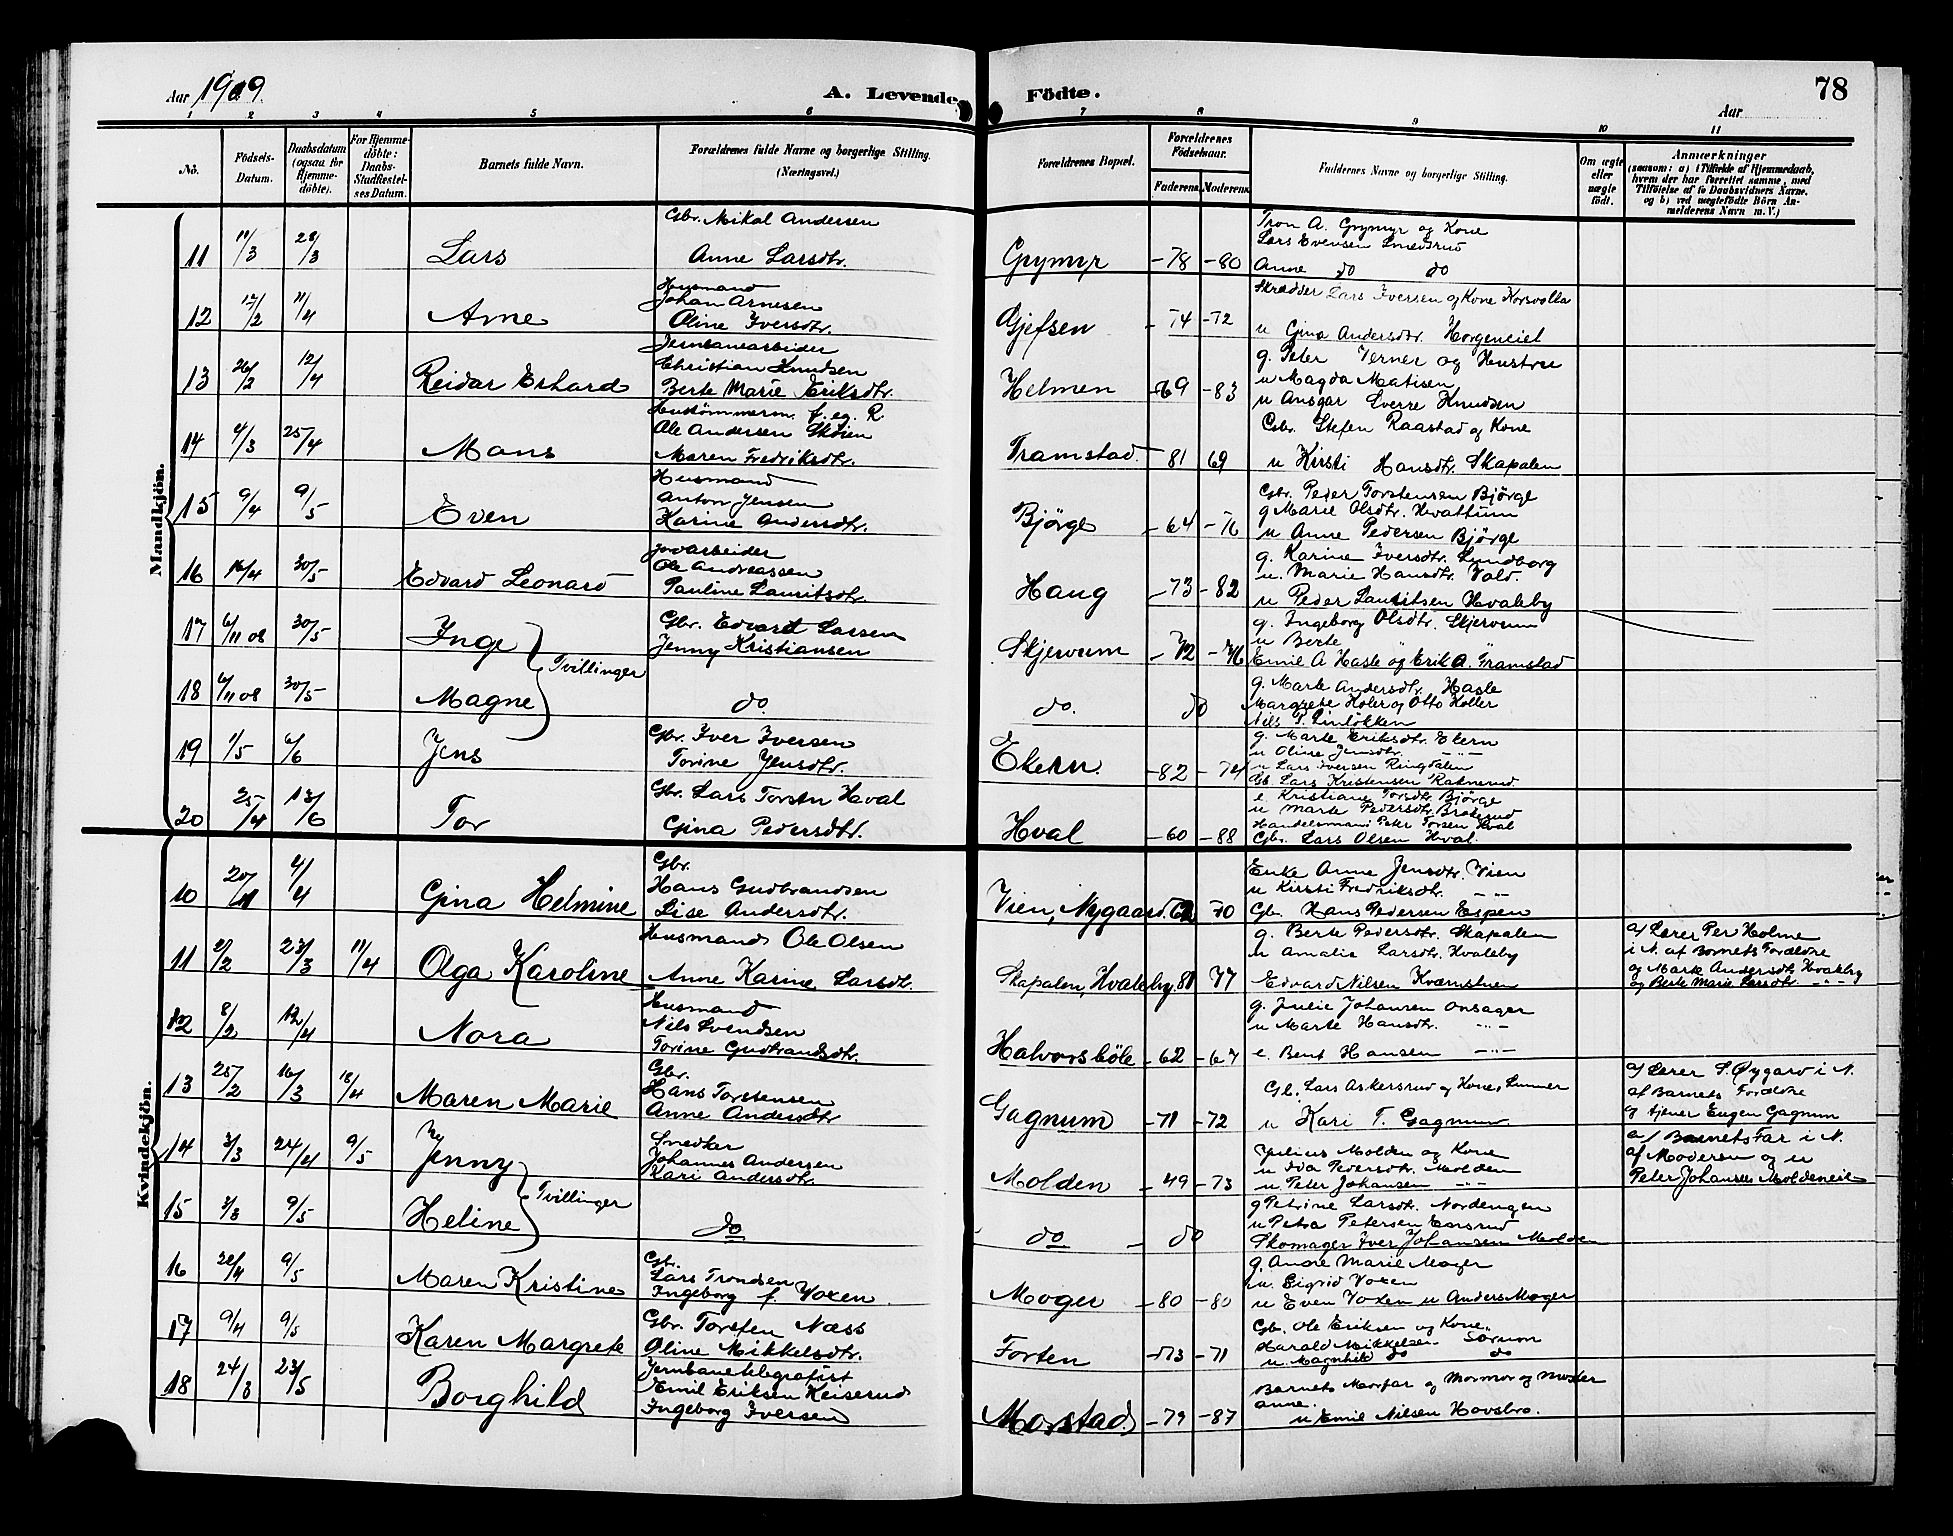 Aar 1909.
A. Levende Födte.
78
Aar
1 2 3 4 5 6 7 8 9 10 11
No.
Födsels-Datum.
Daabsdatum (ogsaa for Hjemme-döbte).
For Hjemme-döbte: Daabs-Stadfæstel-ses Datum.
Barnets fulde Navn.
Forældrenes fulde Navne og borgerlige Stilling.
(Næringsvei.)
Forældrenes Bopæl.
Forældrenes Födselsaar.
Faderens. Moderens.
Faddernes Navne og borgerlige Stilling.
Om ægte eller uægte födt.
Anmærkninger
(saasom: a) i Tilfælde af Hjemmedaab,
hvem der har forrettet samme, med
Tilföielse af to Daabsvidners Navne,
og b) ved uægtefödte Börn An-
melderens Navn m. V.)
Mandkjön.
11 11/3 28/3 Lars
Gbr. Mikal Andersen
Anne Larsdtr.
Grymyr -78 -80
Tron A. Grymyr og Kone
Lars Evensen Smedsrud
Anne do do
12 17/2 11/4 Arne
Husmand
Johan Arnesen
Oline Iversdtr.
Gjefsen -74 -72
Skrædder Lars Iversen og Kone Korsvolla
u Gina Andersdtr. Horgeneiet
13 26/2 12/4 Reidar Erhard
Jernbanearbeider
Christian Knudsen
Berte Marie Eriksdtr.
Helmen -69 -83
g. Peter Verner og Hustru
u Magda Matisen
u Ansgar Sverre Knudsen
14 4/3 25/4 Mons
Hustømmerm. f. eg. R
Ole Andersen Skøien
Maren Fredriksdtr.
Tramstad -81 69
Gbr. Stefen Raastad og Kone
u Kirsti Hansdtr. Skapalen
15 9/4 9/5 Even
Husmand
Anton Jensen
Karine Andersdtr.
Bjørge -64 -76
Gbr. Peder Torstensen Bjørge
g Marie Olsdtr. Hvattum
u Anne Pedersen Bjørge
16 16/4 30/5 Edvard Leonard
Jordarbeider
Ole Andreassen
Pauline Lauritsdtr.
Haug -73 -82
g. Karine Iversdtr. Lundborg
u. Marie Hansdtr. Vold.
u Peder Lauritsen Hvaleby
17 6/11 08 30/5 Inge
Tvillinger
Gbr. Edvard Larsen
Jenny Kristiansen
Skjervum -72 -76
g. Ingeborg Olsdtr. Skjervum
u Berte "
Emil A Hasle og Erik A. Tramstad
18 6/11 08 30/5 Magne
do.
do. do
g. Marte Andersdtr. Hasle
Margrete Koler og Otto Koller
Nils P. Linløkken
19 1/5 6/6 Jens
Gbr. Iver Iversen
Torine Jensdtr.
Ekern. -82 -74
g. Marte Eriksdtr. Ekern
u Oline Jensdtr. -"-
u Lars Iversen Ringdalen
Gb. Lars Kristensen
20 25/4 13/6 Tor
Gbr. Lars Torsten Hval
Gina Pedersdtr.
Hval -60 -88
e Kristiane Torsdtr. Bjørge
u Marte Pedersdtr. Braterud
Handelsmand Peter Torsen Hval
Gbr. Lars Olsen Hval.
Kvindekjön.
10 20/11 4/4 Gina Helmine
Gbr.
Hans Gudbrandsen
Lise Andersdtr.
Vien, Nygaard. 62 70
Enke Anne Jensdtr. Vien
u Kirsti Fredriksdtr. -"-
Gb. Hans Pedersen Espen
11 2/2 23/3 11/4 Olga Karoline
Husmand Ole Olsen
Anne Karine Larsdtr.
Skapalen, Hvaleby 81 77
g. Berte Pedersdtr. Skapalen
u Amalie Larsdtr. Hvaleby
Edvard Nilsen Kværnstuen
af Lærer Per Holme
i N. af Barnets Forældre
og Marte Andersdtr. Hvaleby
og Berte Marie Larsdtr. -"-
12 8/2 12/4 Nora
Husmand
Nils Svendsen
Torine Gudbrandsdtr.
Halvorsböle -62 -67
g. Julie Johansen Onsager
u Marte Hansdtr. -"-
e. Bent Hansen -"-
13 25/2 16/3 18/4 Maren Marie
Gbr.
Hans Torstensen
Anne Andersdtr
Gagnum -71 -72
Gb. Lars Askersrud og Kone, Lunner
u Kari T. Gagnum
af Lærer S. Øygard i N.
af Barnets Forældre
og tjener Eugen Gagnum
14 3/3 24/4 9/5 Jenny
Tvillinger
Smedker
Johannes Andersen
Kari Andersdtr.
Molden -49 -73
Julius Molden og Kone
u Ida Pedersdtr. Molden
u Peter Johansen -"-
af Barnets Far i N.
af Moderen og u
Peter Johansen Moldeneiet
15 3/3 9/5 Heline
do
do do
g Petrine Larsdtr. Nordengen
u Petra Petersen
Skomager Iver Johansen Molden
16 20/4 9/5 Maren Kristine
Gb.
Lars Trondsen
Ingeborg f. Voxen
Moger -80 -80
g. Andre Marie Moger
u. Sigrid Voxen
u Even Voxen u Anders Moger
17 9/4 9/5 Karen Margrete
Gbr. Torsten Næss
Oline Mikkelsdtr.
Forten -73 -71
Gb. Ole Eriksen og Kone.
Harald Mikkelsen Sørum
u. Magnhild do do
18 24/3 23/5 Borghild
Jernbanetelegrafist
Emil Eriksen Keiserud
Ingeborg Iversen
Morstad -79 -87
Barnets Morfar og Mormor og Moster
Anne.
u Emil Nilsen Hovsbro.